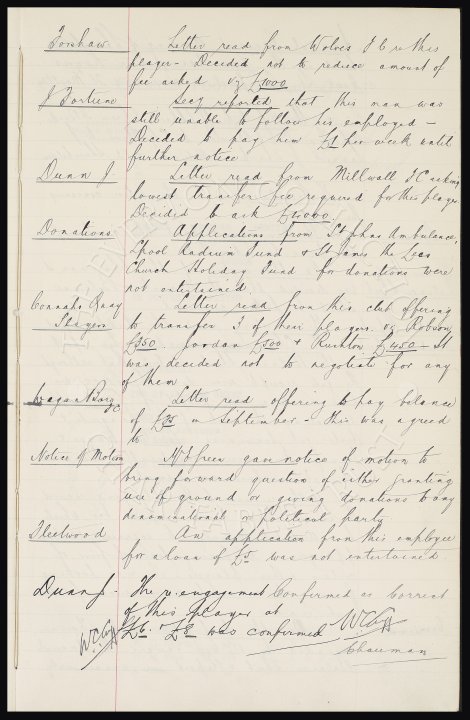 Forshaw Letter read from Wolves F C re this
player - Decided not to reduce amount of
fee asked viz £1000
J Fortune Secy reported that this man was
still unable to follow his employed -
Decided to pay him £1 per week until
further notice
Dunn J Letter read from Millwall F C asking
lowest transfer fee required for this player
Decided to ask £4000!
Donations Applications from St Johns Ambulance,
L'pool Radium Fund & St James the Less
Church Holiday Fund for donations were
not entertained
Connahs Quay Letter read from this club offering
Players to transfer 3 of their players viz Robson
£350 Jordan £500 & Rushton £450 - It
was decided not to negotiate for any
of them
Letter read offering to pay balance
of £25 in September - this was agreed
to
Notice of Motion Mr Green gave notice of motion to
bring forward question of either granting
use of ground or giving donations to any
denominational or political party
Fleetwood An application from this employee
for a loan of £5 was not entertained
Dunn J. The re-engagement Confirmed as Correct
of this player at
£6. & £8 was confirmed
Chairman